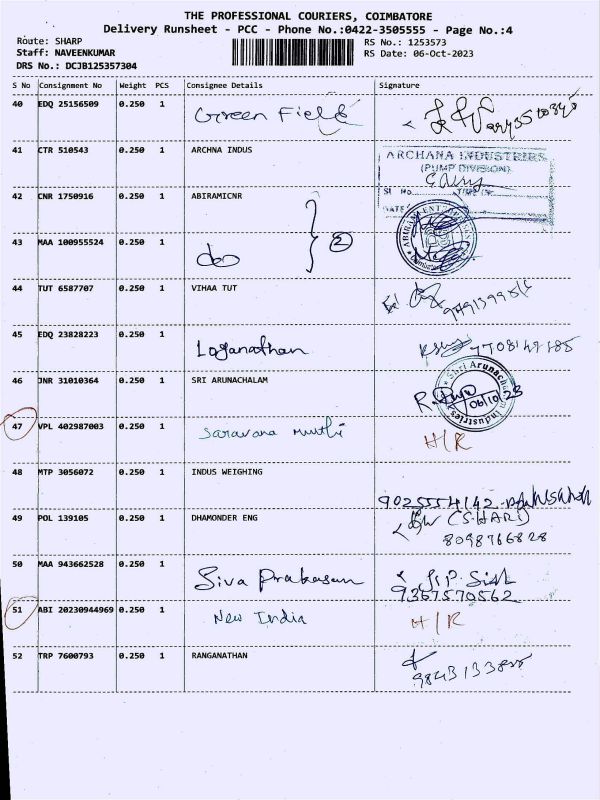 THE PROFESSIONAL COURIERS, COIMBATORE
Delivery Runsheet - PCC - Phone No.:0422-3505555 - Page No.:4
Route: SHARP
RS No.: 1253573
Staff: NAVEENKUMAR
RS Date: 06-Oct-2023
DRS No.: DCJB125357304
S No Consignment No Weight PCS Consignee Details Signature
40 EDQ 25156509 0.250 1 Green Field
41 CTR 510543 0.250 1 ARCHNA INDUS
ARCHANA INDUSTRIES
(PUMP DIVISION)
Sl No. TIME
DATE
42 CNR 1750916 0.250 1 ABIRAMICNR
43 MAA 100955524 0.250 1 do 2
44 TUT 6587707 0.250 1 VIHAA TUT
45 EDQ 23828223 0.250 1 Loganathan
46 JNR 31010364 0.250 1 SRI ARUNACHALAM
Shri Arunachalam Industries
06/10/23
47 VPL 402987003 0.250 1 Saravana Muthi H/R
48 MTP 3056072 0.250 1 INDUS WEIGHING
9025554142
49 POL 139105 0.250 1 DHAMONDER ENG (S.HARI)
8098766828
50 MAA 943662528 0.250 1 Siva Prakasam
9367570562
51 ABI 20230944969 0.250 1 New India H/R
52 TRP 7600793 0.250 1 RANGANATHAN